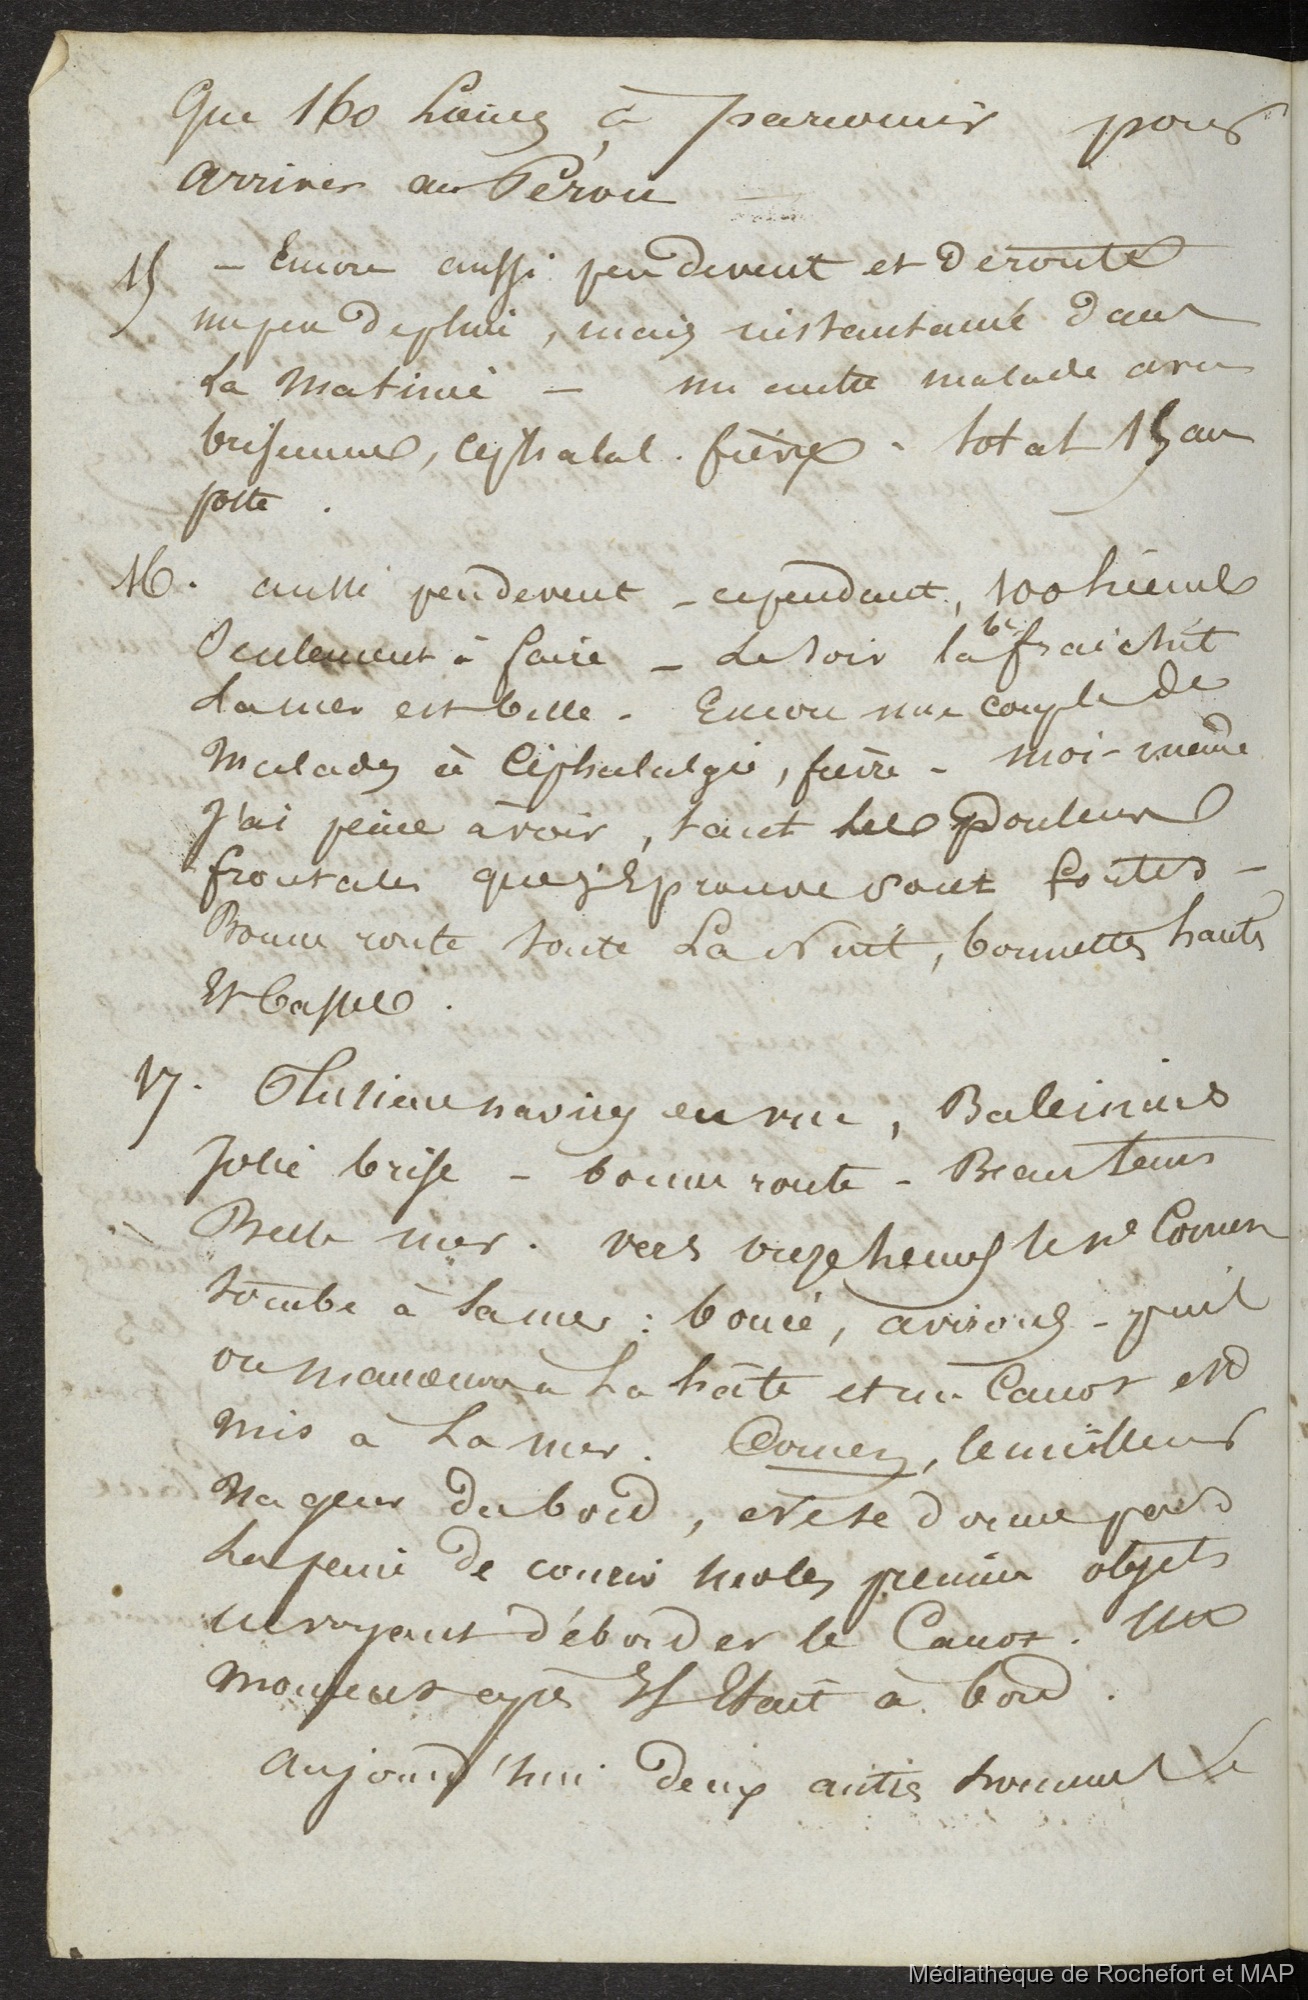 Que 160 Lieues à parcourir pour
arriver au Pérou
15 — Encore aussi peu de vent et de route
un peu de pluie, mais instantané dans
La Matinée — un autre malade avec
brisement, céphalal. fièvre - total 15 au
poste.
16. aussi peu de vent - cependant, 100 Lieues
Seulement à faire — Le soir la be fraichit
La mer est belle - Encore une couple de
Malades à Céphalalgie, fièvre - moi-même
J'ai peine à voir, tant les douleurs
frontales que j'Eprouve sont fortes -
Bonne route toute La Nuit, bonnettes hautes
Et basses.
17. Plusieurs navires en vue, Baleiniers
Jolie brise - bonne route - Beau tems
Belle mer. vers onze heures le né Cornen
tombe à la mer : bouée, avirons -
on manoeuvre à La hâte et un Canot est
mis à La mer. Cornen, le meilleur
Nageur du bord, ne se donne pas
La peine de courir sur les premiers objets
en voyant déborder le Canot. Un
moment après Il Etait à bord.
Aujourd'hui deux autres hommes
Médiathèque de Rochefort et MAP